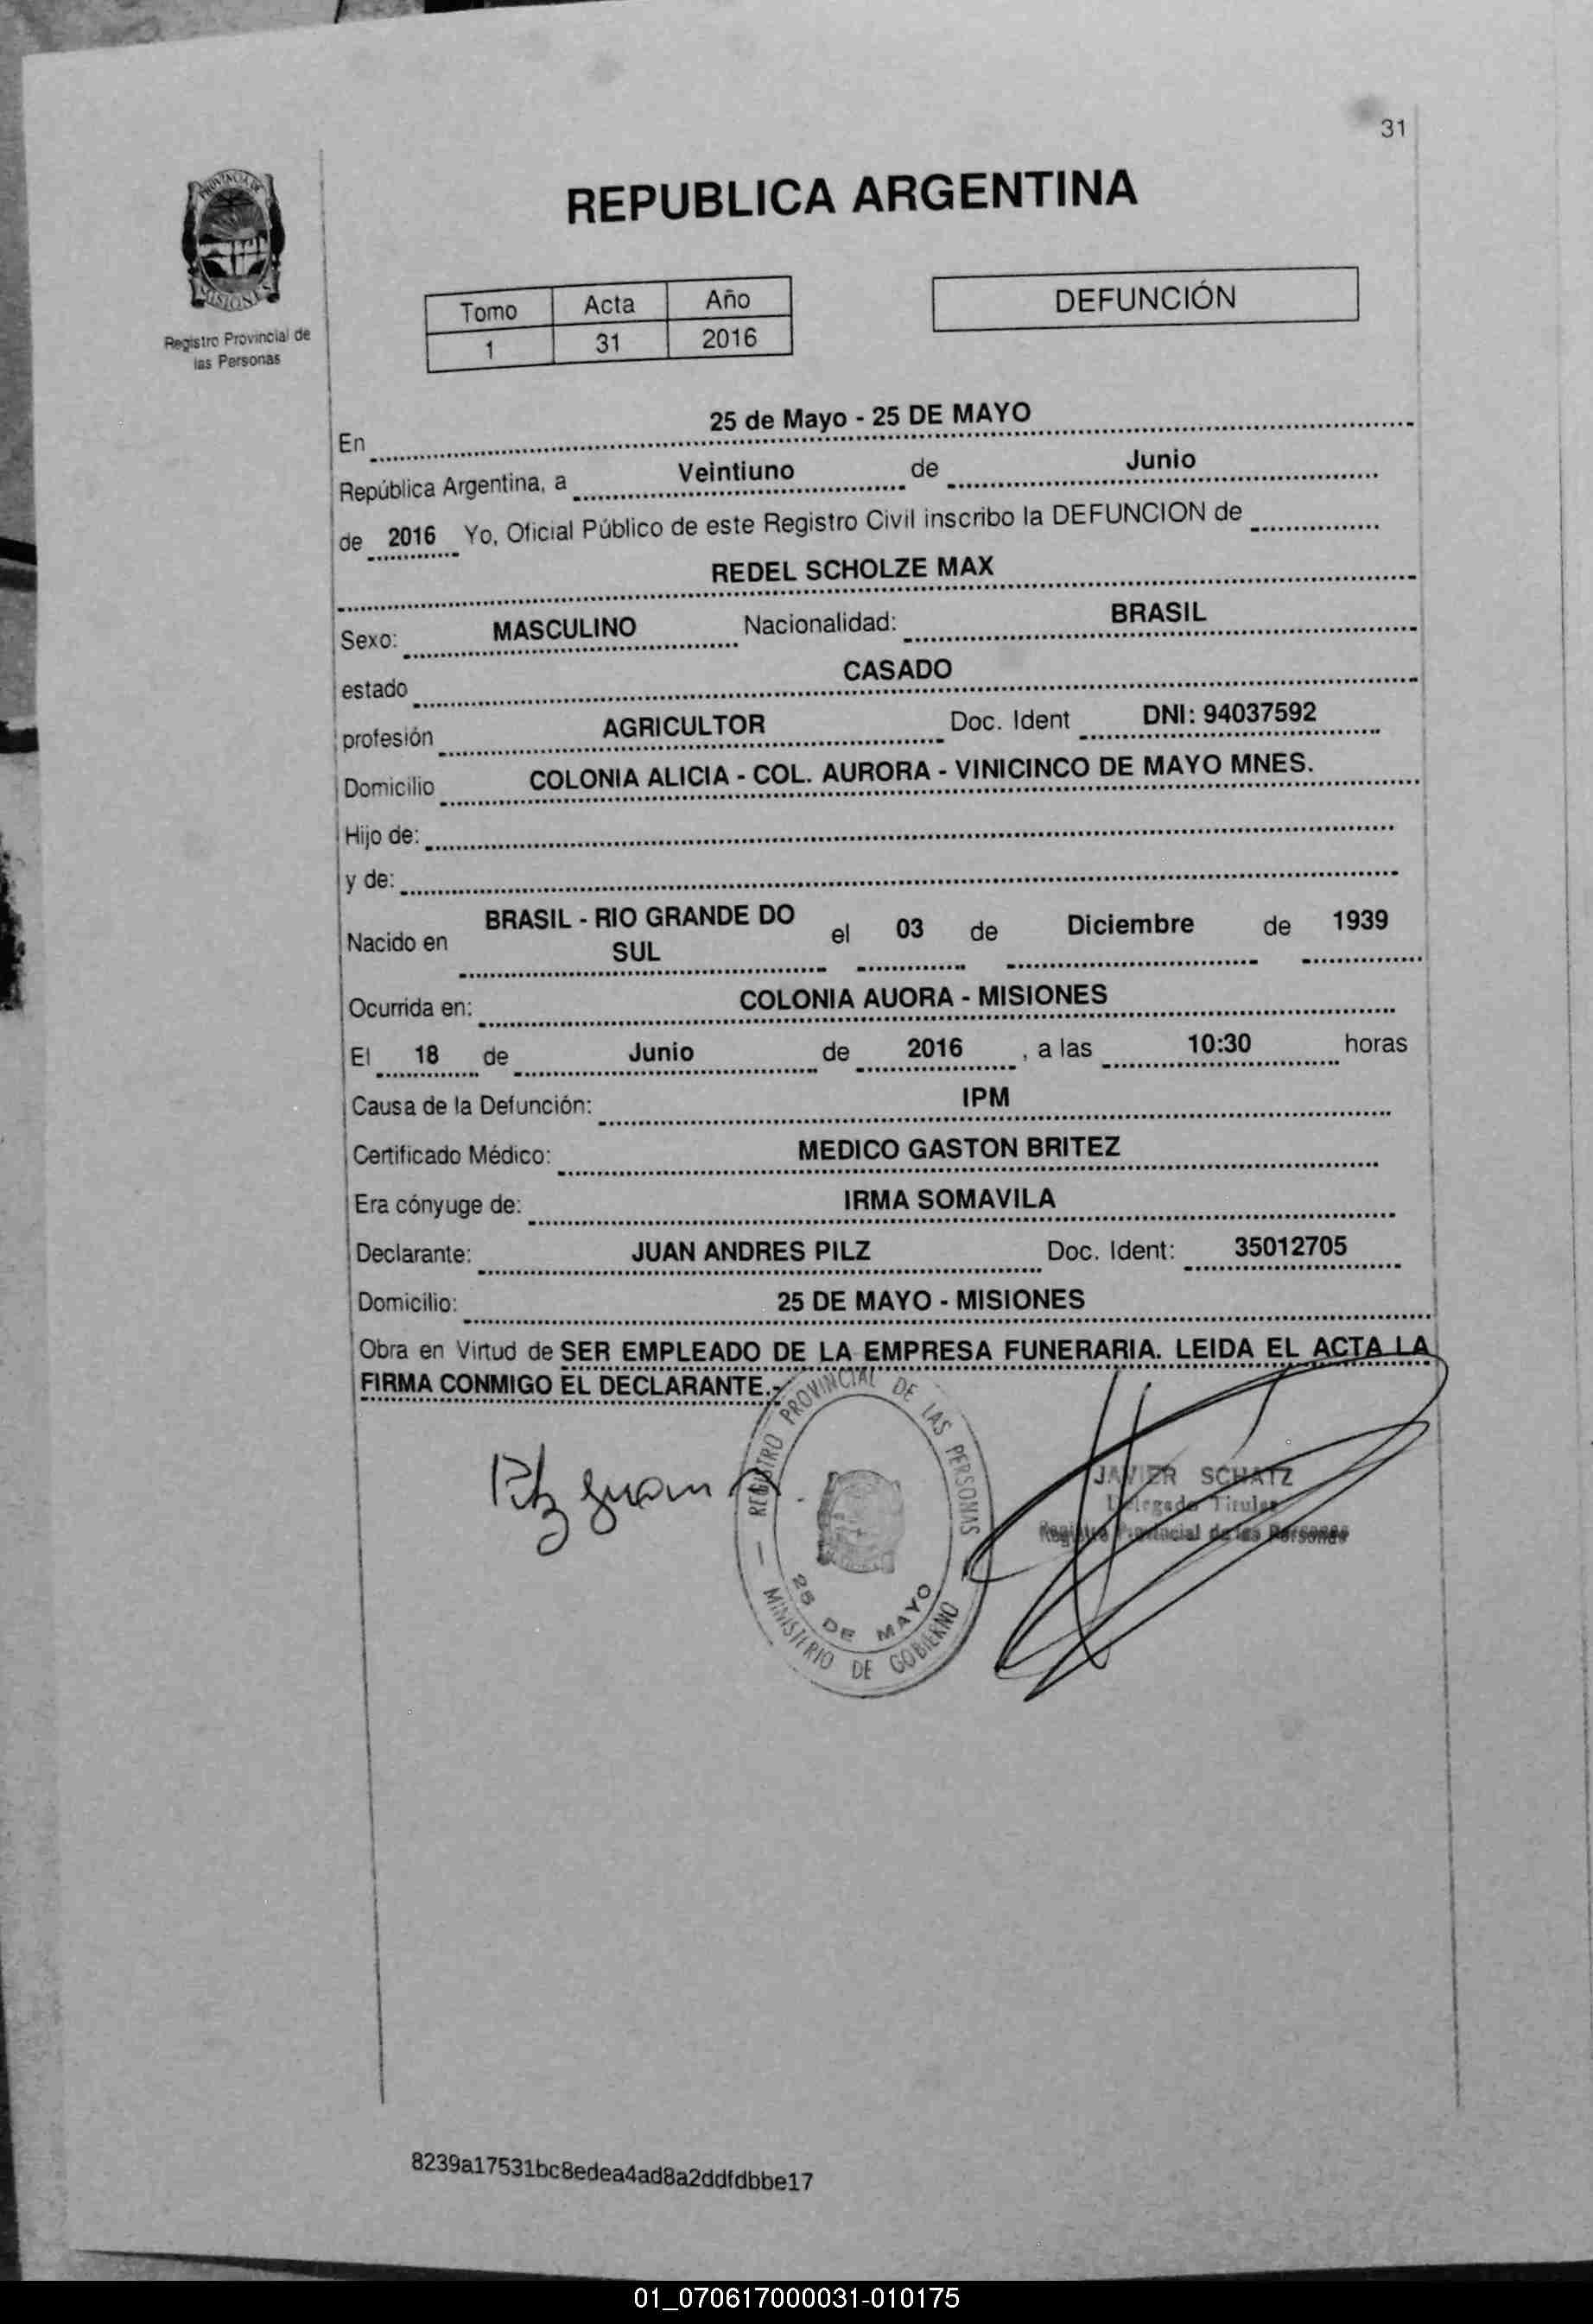 31
PROVINCIA DE
MISIONES
Registro Provincial de
las Personas
REPUBLICA ARGENTINA
Tomo Acta Año
1 31 2016
DEFUNCIÓN
En 25 de Mayo - 25 DE MAYO
República Argentina, a Veintiuno de Junio
de 2016 Yo, Oficial Público de este Registro Civil inscribo la DEFUNCION de
REDEL SCHOLZE MAX
Sexo: MASCULINO Nacionalidad: BRASIL
estado CASADO
profesión AGRICULTOR Doc. Ident DNI: 94037592
Domicilio COLONIA ALICIA - COL. AURORA - VINICINCO DE MAYO MNES.
Hijo de:
y de:
Nacido en BRASIL - RIO GRANDE DO SUL el 03 de Diciembre de 1939
Ocurrida en: COLONIA AUORA - MISIONES
El 18 de Junio de 2016 , a las 10:30 horas
Causa de la Defunción: IPM
Certificado Médico: MEDICO GASTON BRITEZ
Era cónyuge de: IRMA SOMAVILA
Declarante: JUAN ANDRES PILZ Doc. Ident: 35012705
Domicilio: 25 DE MAYO - MISIONES
Obra en Virtud de SER EMPLEADO DE LA EMPRESA FUNERARIA. LEIDA EL ACTA LA
FIRMA CONMIGO EL DECLARANTE.-
Pilz Juan A
REGISTRO PROVINCIAL DE LAS PERSONAS
25 DE MAYO
MINISTERIO DE GOBIERNO
JAVIER SCHATZ
Delegado Titular
Registro Provincial de las Personas
8239a17531bc8edea4ad8a2ddfdbbe17
01_070617000031-010175